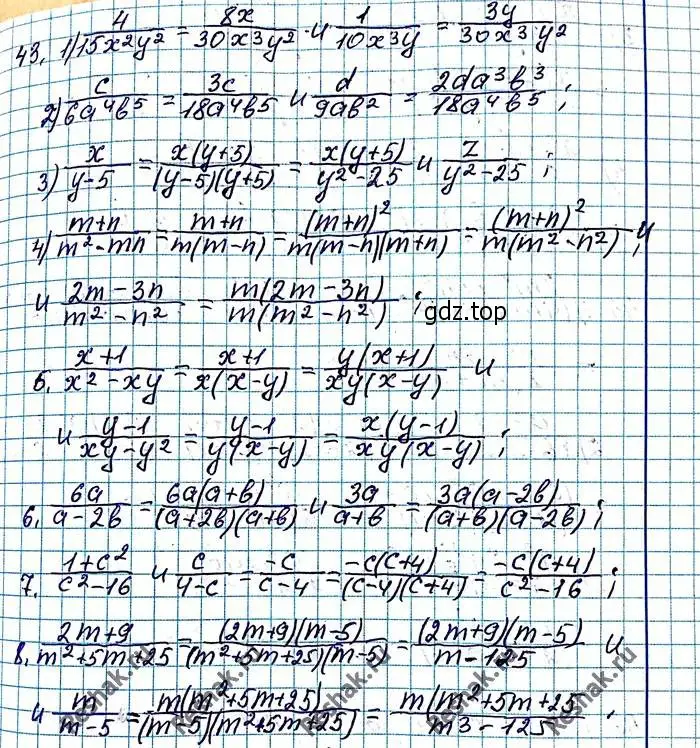 43. 1) 4/15x²y² = 8x/30x³y² и 1/10x³y = 3y/30x³y²
2) c/6a⁴b⁵ = 3c/18a⁴b⁵ и d/9ab² = 2da³b³/18a⁴b⁵ ;
3) x/(y-5) = x(y+5)/((y-5)(y+5)) = x(y+5)/(y²-25) и z/(y²-25) ;
4) (m+n)/(m²-mn) = (m+n)/(m(m-n)) = (m+n)²/(m(m-n)(m+n)) = (m+n)²/(m(m²-n²)) , и
и (2m-3n)/(m²-n²) = m(2m-3n)/(m(m²-n²)) ;
gdz.top
5. (x+1)/(x²-xy) = (x+1)/(x(x-y)) = y(x+1)/(xy(x-y)) и
и (y-1)/(xy-y²) = (y-1)/(y(x-y)) = x(y-1)/(xy(x-y)) ;
6. 6a/(a-2b) = 6a(a+b)/((a+2b)(a+b)) и 3a/(a+b) = 3a(a-2b)/((a+b)(a-2b)) ;
7. (1+c²)/(c²-16) и c/(4-c) = -c/(c-4) = -c(c+4)/((c-4)(c+4)) = -c(c+4)/(c²-16) ;
8. (2m+9)/(m²+5m+25) = (2m+9)(m-5)/((m²+5m+25)(m-5)) = (2m+9)(m-5)/(m-125) и
и m/(m-5) = m(m²+5m+25)/((m-5)(m²+5m+25)) = m(m²+5m+25/(m3-125) .
Reshak.ru
Reshak.ru
Reshak.ru
Reshak.ru